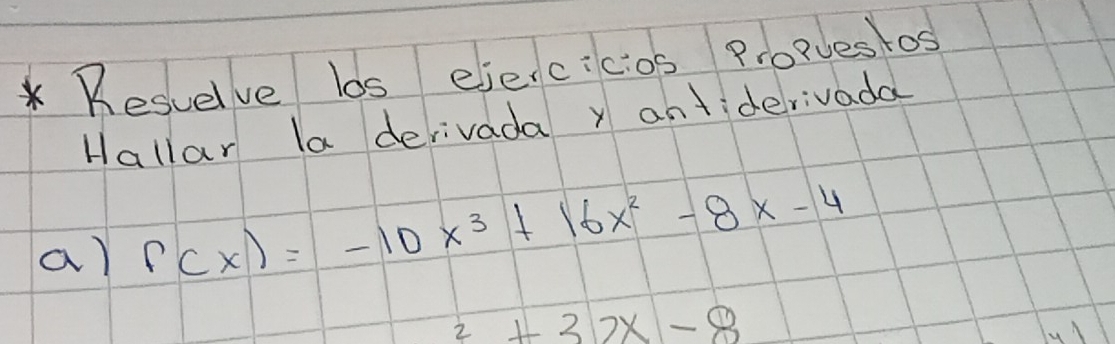 * Resuelve los ejercicios Propuestos
Hallar la derivada y antiderivada
a) f(x) = -10x³ + 16x² - 8x - 4
² + 32x - 8